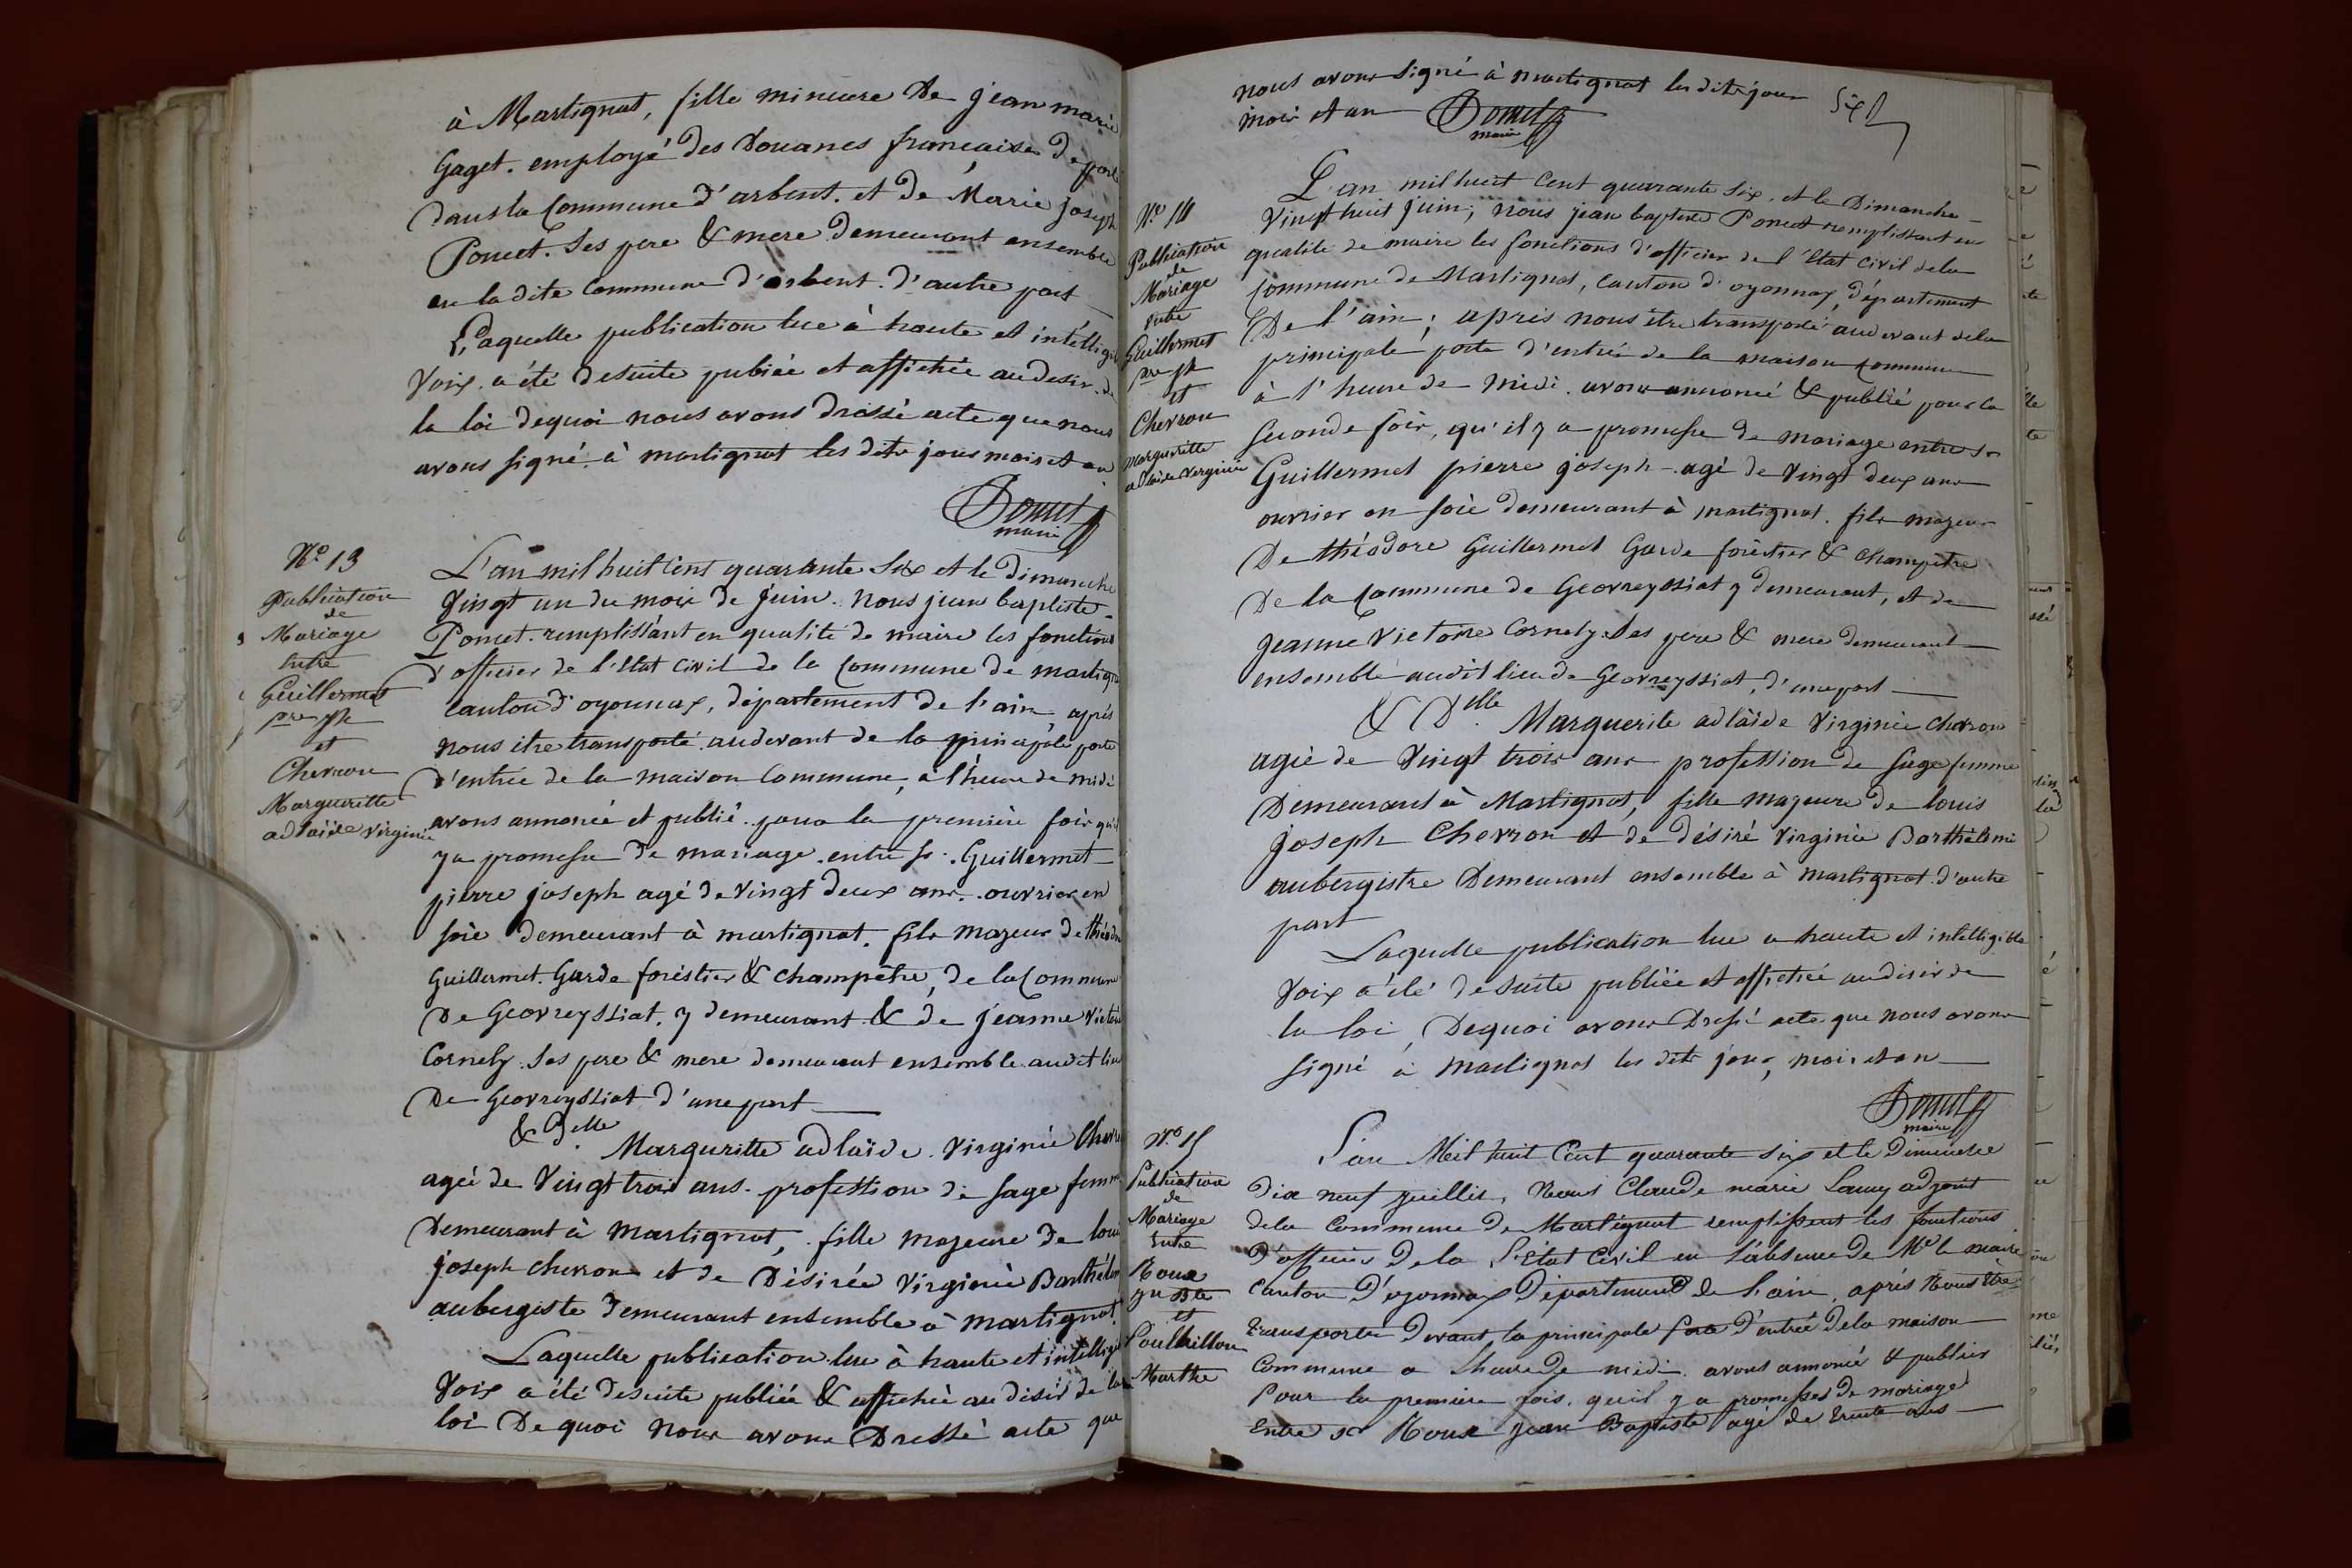 à Martignat, fille mineure De jean marie
Gaget. employé des Douanes françaises De
Dans la Commune d'arbent. et de Marie joseph
Poncet. Ses pere & mere Demeurant ensemble
en la dite Commune d'arbent. d'autre part
Laquelle publication lue à haute et intélligi
Voix. a été desuite pubiée et affichée au desir de
la loi dequoi nous avons dréssé acte que nous
avons signé. à martignat les dits jour mois et an
Poncet
maire
N° 13
Publication
de
Mariage
Entre
Guillermet
pre jh
et
Chevron
Margueritte
adlaïde virginie
L'an mil huit Cent quarante Six et le Dimanche
Vingt un du mois de Juin. Nous jean baptiste
Poncet. remplissant en qualité de maire les fonctions
d'officier de l'Etat Civil de la Commune de martigna
Canton d'oyonnax, département de l'ain, aprés
nous être transporté audevant de la principale porte
d'entrée de la maison Commune, à l'heure de midi
avons annoncé et publié. pour la premiére fois qu'il
y a promesse De mariage. entre sr. Guillermet
pierre joseph agé de Vingt Deux ans. ouvrier en
soie demeurant à martignat. fils Majeur De théodore
Guillermet. Garde foréstier & champêtre, de la Commune
De Géovreyssiat. y demeurant. & de jeanne Victoire
Cornely. Ses pere & mere demeurant ensemble audit lieu
De Geovreyssiat d'une part
& Delle Margueritte adlaïde. Virginie Chevron
agée de Vingt trois ans. profession de sage femme
Demeurant à Martignat, fille majeure De louis
joseph Chevron et de Désirée Virginie Barthélem
aubergiste Demeurant ensemble à martignat.
Laquelle publication lue à haute et intélligi
Voix a été desuite publiée & affichée au désir de la
loi De quoi nous avons Dressé acte que
nous avons Signé à martignat les dits jour
mois et an Poncet
maire
Six
N° 14
Publication
de
Mariage
entre
Guillermet
pre jh
et
Chevron
Margueritte
adlaïde Verginie
L'an mil huit Cent quarante Six, et le Dimanche
Vingt huit juin; nous jean baptiste Poncet remplissant en
qualité de maire les fonctions d'officier de l'Etat Civil dela
Commune de Martignat, Canton d'oyonnax, département
De l'ain; aprés nous être transporté audevant dela
principale porte d'entrée de la maison Commune
à l'heure de midi. avons annoncé & publié pour la
Seconde fois, qu'il y a promesse de mariage entre Sr
Guillermet pierre joseph. agé de Vingt deux ans
ouvrier en soie demeurant à martignat. fils majeur
De théodore Guillermet Garde foréstier & Champêtre
De la Commune de Geovreyssiat y demeurant, et de
Jeanne Victoire Cornely. Ses pere & mere demeurant
ensemble audit lieu de Geovreyssiat, d'une part
& Delle. Marguerite adlaïde Virginie Chevron
agée de Vingt trois ans profession de sage femme
Demeurant à Martignat, fille majeure de louis
Joseph Chevron et de désiré Virginie Barthélemi
aubergistre Demeurant ensemble à martignat. d'autre
part
Laquelle publication lue a haute et intelligible
Voix a été desuite publiée et affichée audisir de
la loi, Dequoi avons Dressé acte que nous avons
signé à martignat les dits jour, mois et an
Poncet
maire
N° 15
Publication
de
Mariage
Entre
Roux
jn Bte
et
Poulhillon
Marthe
L'an Mil huit Cent quarante six et le Dimenche
Dix neuf juillis, Nous Claude marie adjoint
dela Commune De Martignat remplissent les fonctions
D'officier De la L'Etat Civil en L'absence de Mr le maire
Canton D'oyonnax Département de Lain, aprés Nous Etre
transporter Devant la principale porte D'entrée Dela maison
Commune a Lheure de midi. avons annoncés & publier
Pour la premiere fois. quil y a promesses De mariage
Entre sr Roux Jean Baptiste agé de trente ans